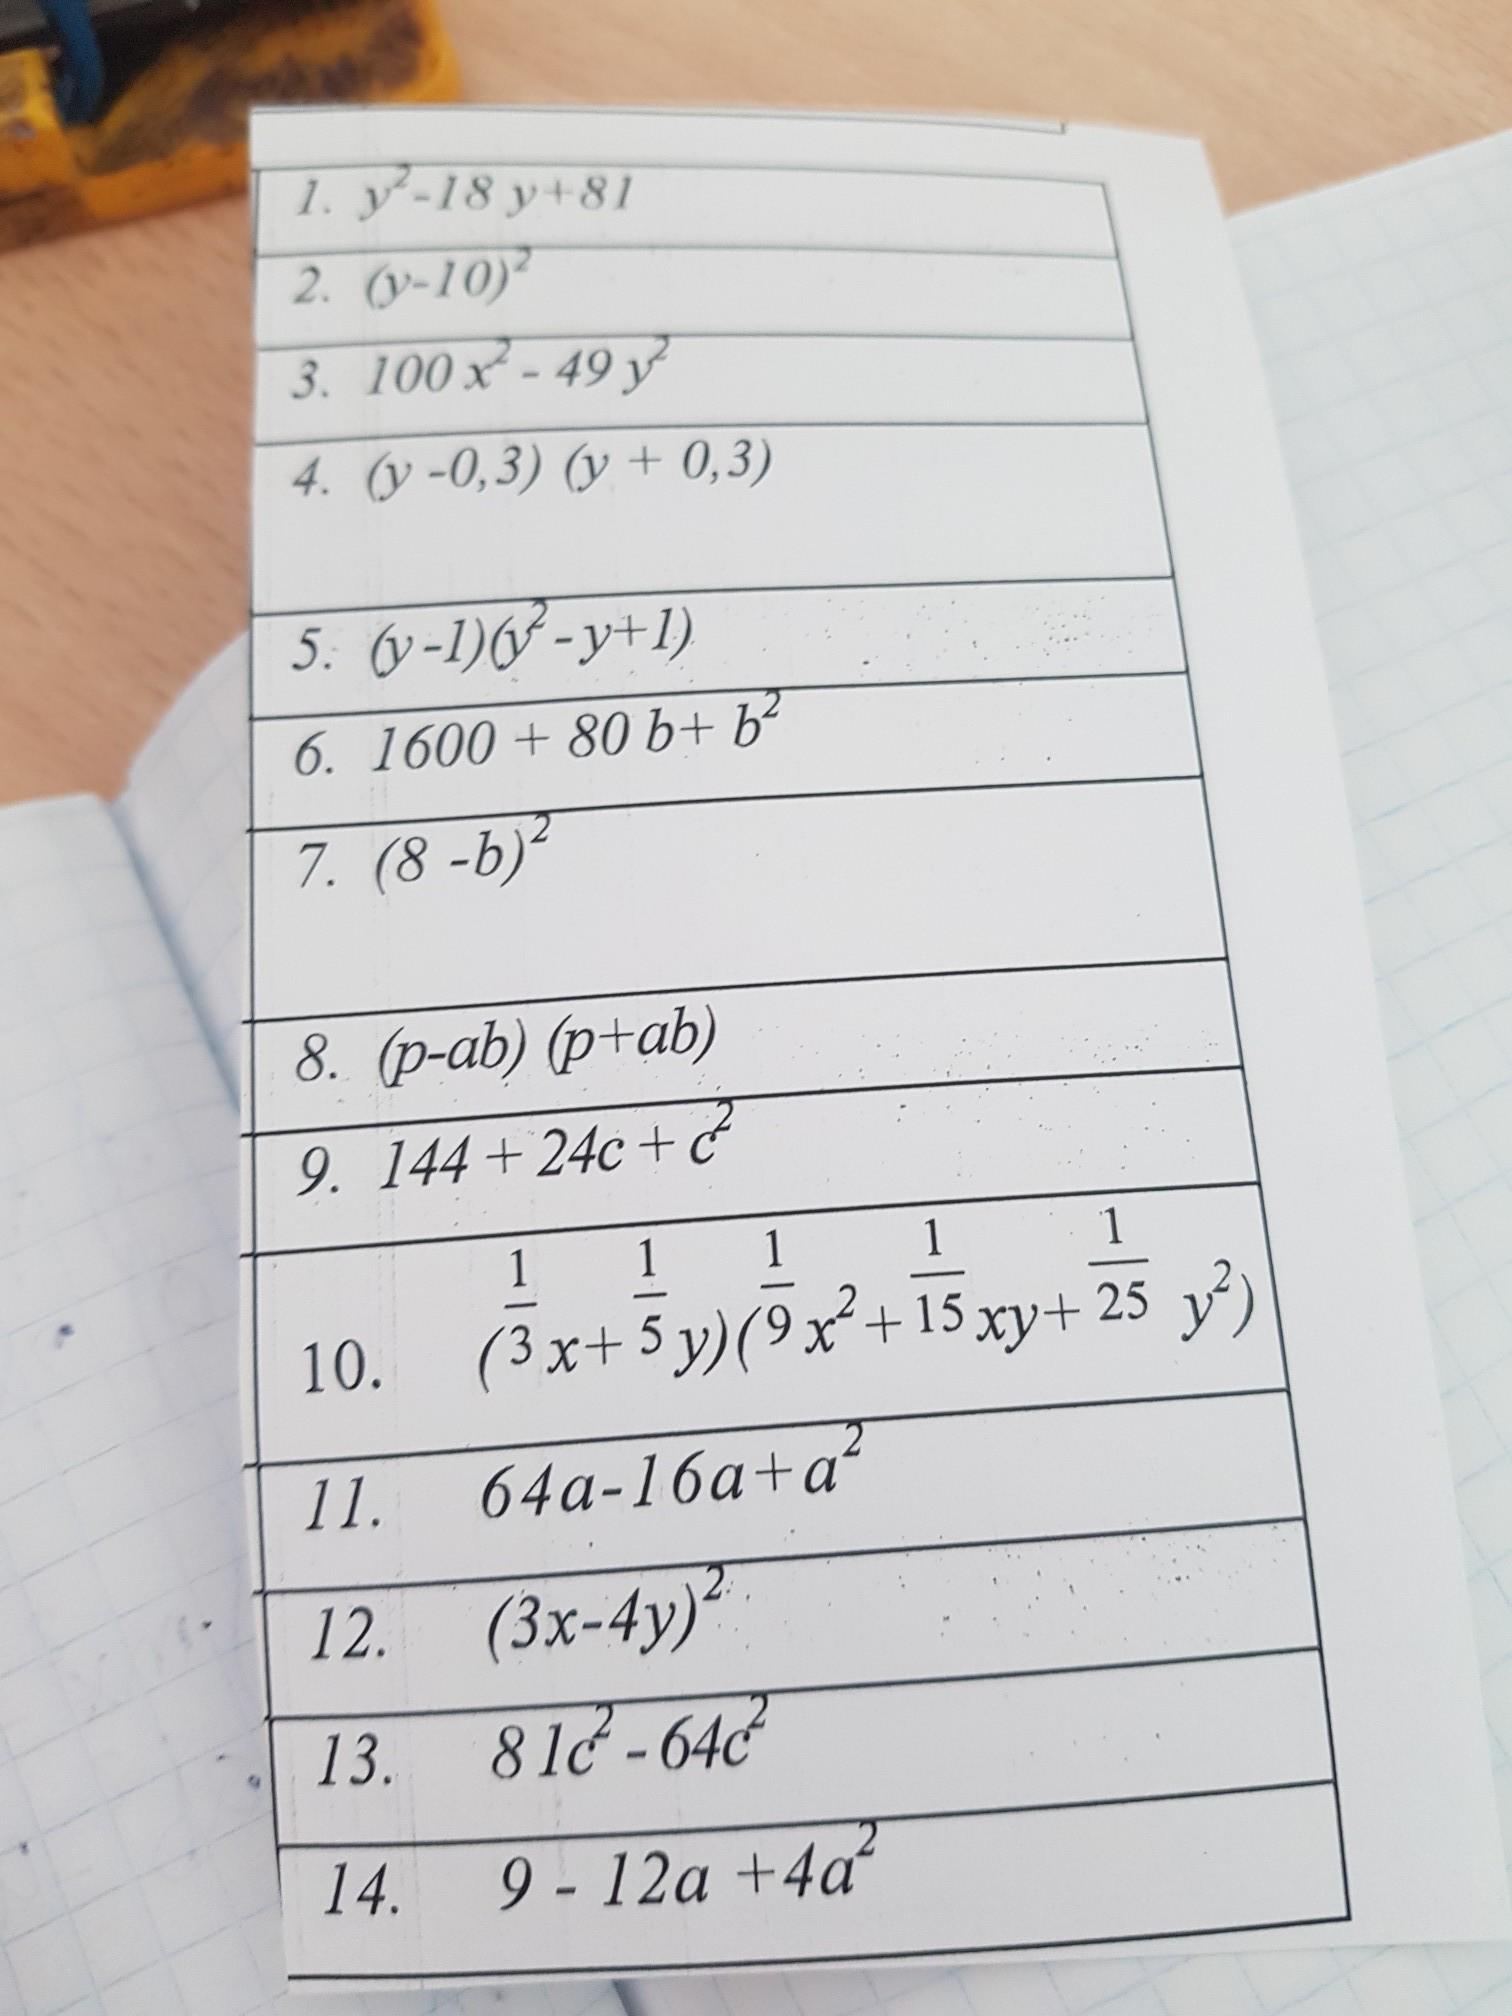 1. y²-18 y+81
2. (y-10)²
3. 100 x² - 49 y²
4. (y -0,3) (y + 0,3)
5. (y -1)(y² - y+1)
6. 1600 + 80 b+ b²
7. (8 -b)²
8. (p-ab) (p+ab)
9. 144 + 24c + c²
10. (1/3 x+ 1/5 y)(1/9 x²+ 1/15 xy+ 1/25 y²)
11. 64a-16a+a²
12. (3x-4y)²
13. 81c² - 64c²
14. 9 - 12a +4a²